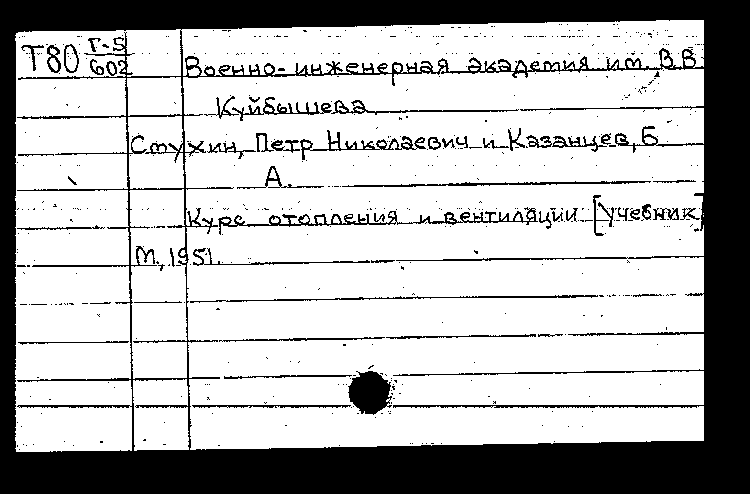 Т80 Г-5
602
Военно-инженерная академия им. В.В.
Куйбышева
Стухин, Петр Николаевич и Казанцев, Б
А.
Курс отопления и вентиляции [учебник]
М., 1951.